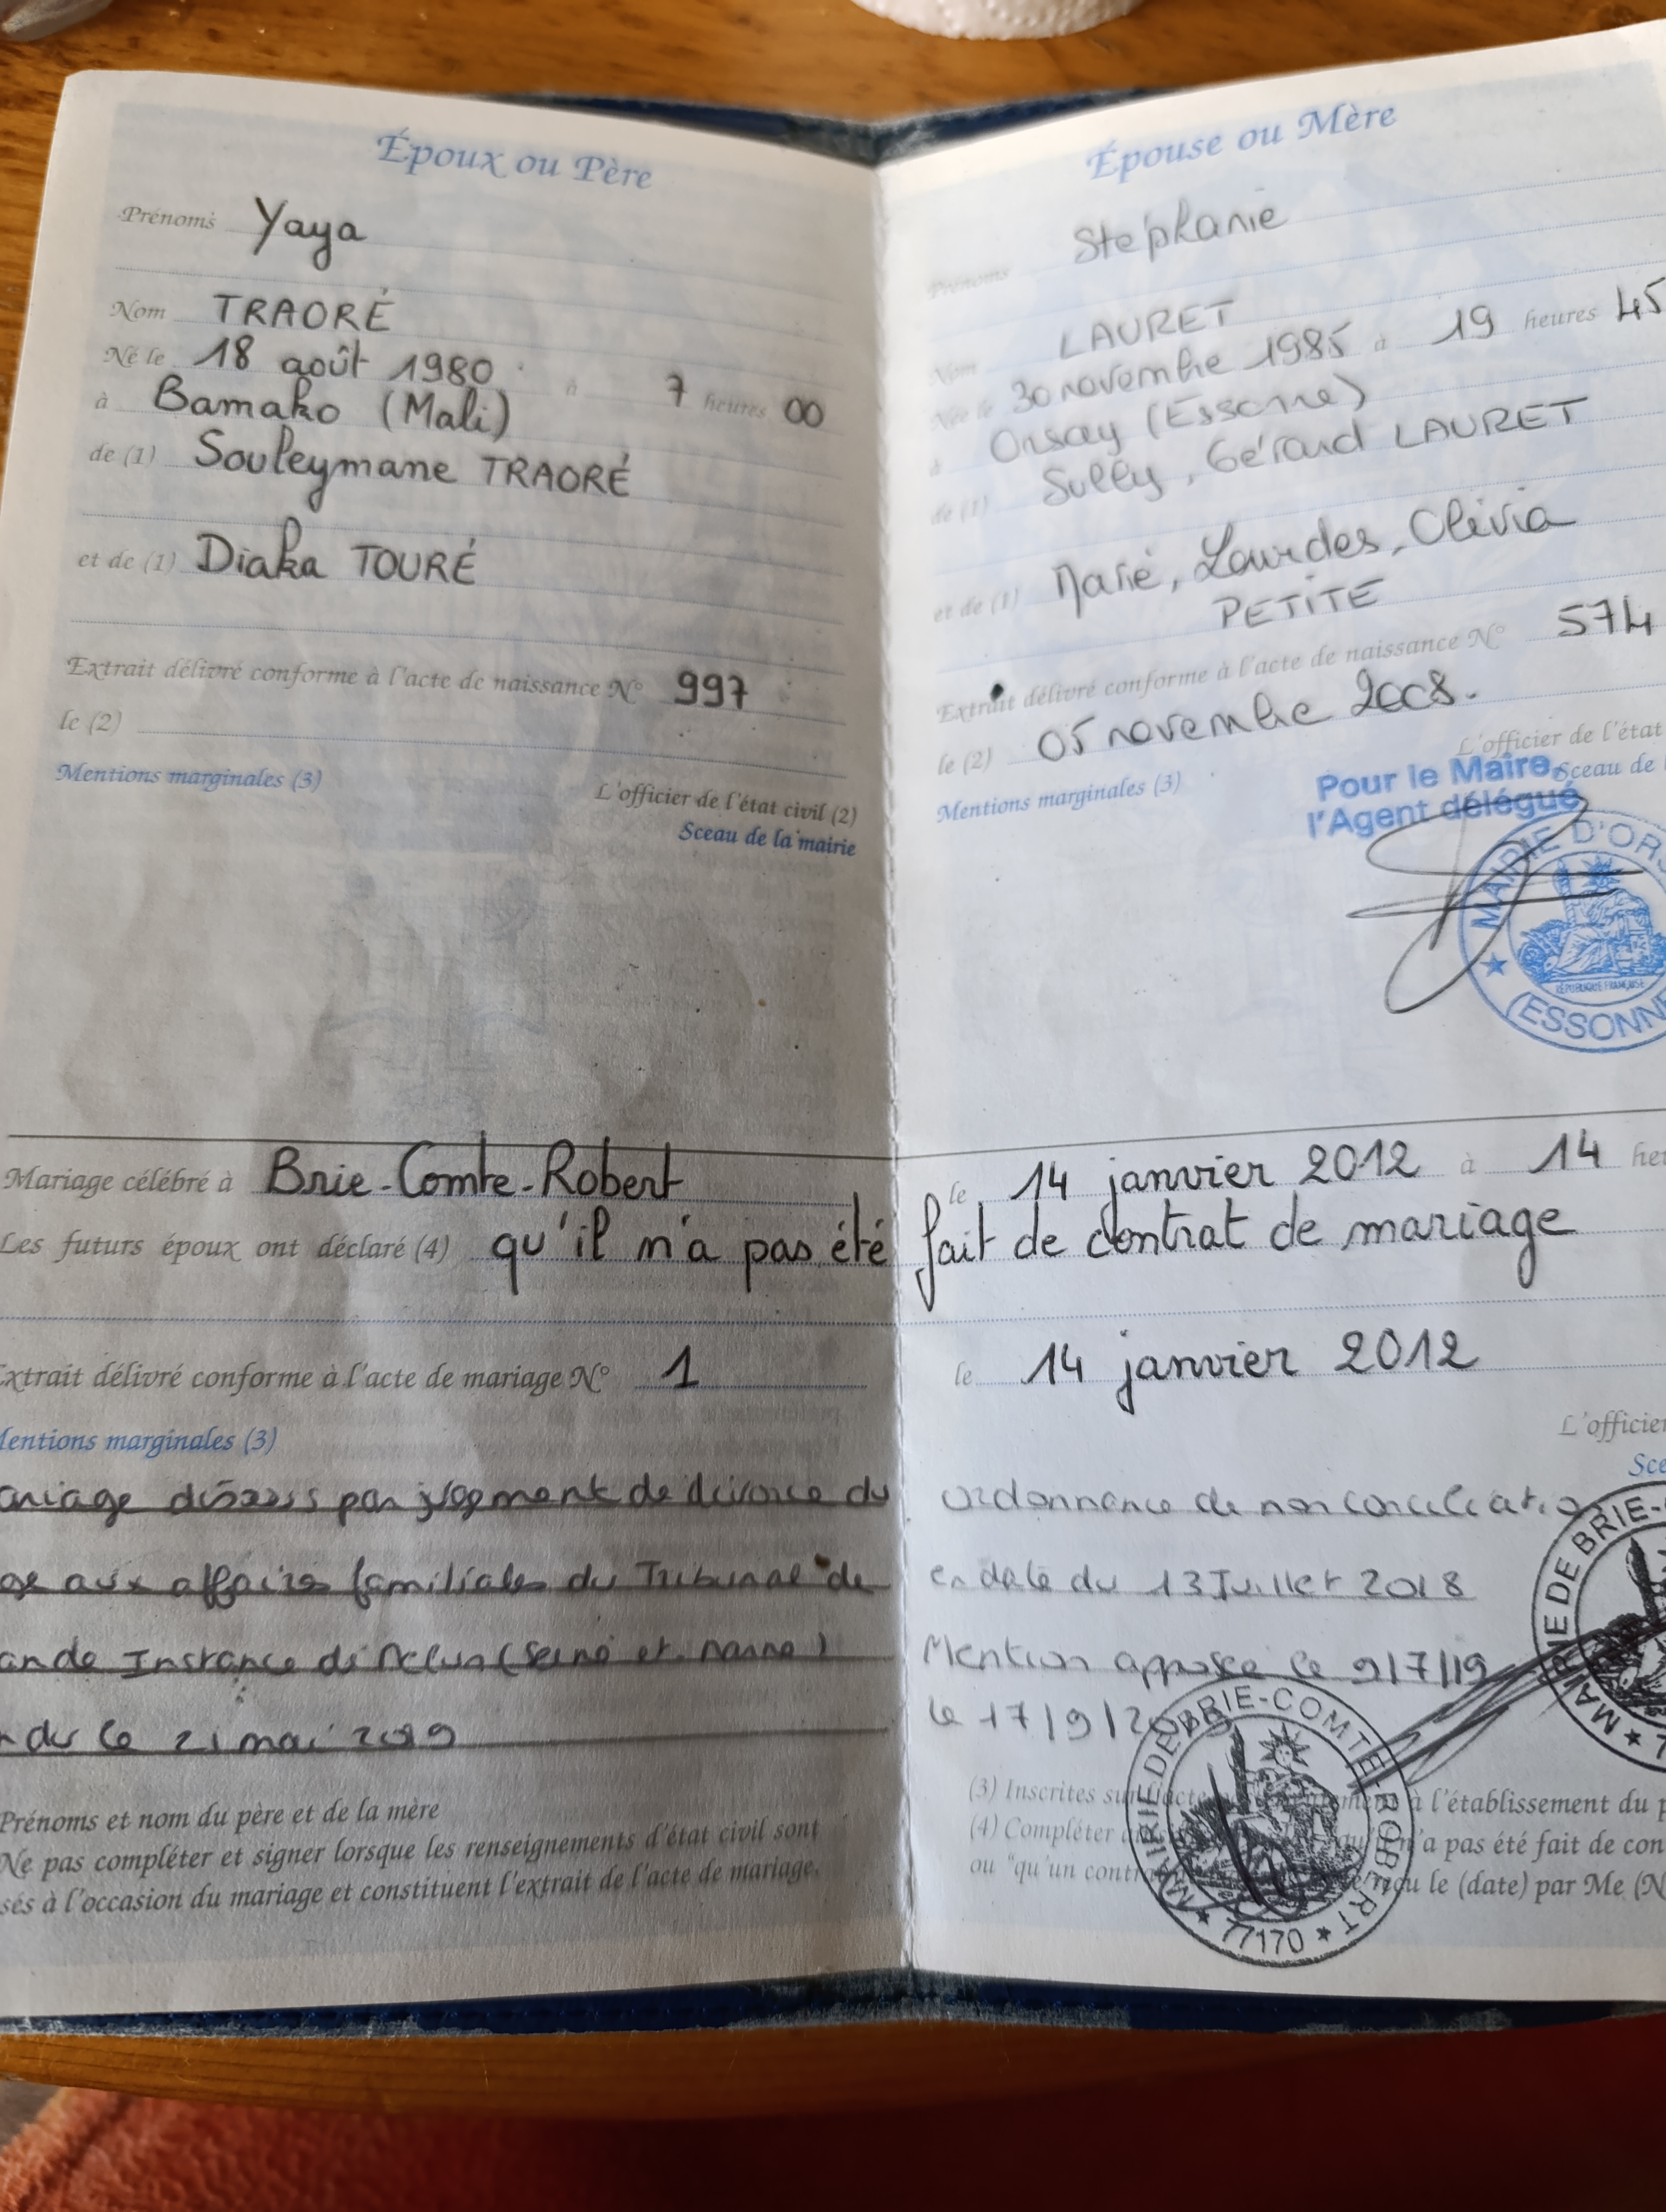 Époux ou Père
Prénoms Yaya
Nom TRAORÉ
Né le 18 août 1980 à 7 heures 00
à Bamako (Mali)
de (1) Souleymane TRAORÉ
et de (1) Diaka TOURÉ
Extrait délivré conforme à l'acte de naissance N° 997
le (2)
Mentions marginales (3)
L'officier de l'état civil (2)
Sceau de la mairie
Épouse ou Mère
Prénoms Stéphanie
Nom LAURET
Née le 30 novembre 1985 à 19 heures 45
à Orsay (Essonne)
de (1) Sully, Gérard LAURET
et de (1) Marie, Lourdes, Olivia
PETITE
Extrait délivré conforme à l'acte de naissance N° 574
le (2) 05 novembre 2008.
L'officier de l'état
Mentions marginales (3)
Sceau de
Pour le Maire,
l'Agent délégué
MAIRIE D'ORS
RÉPUBLIQUE FRANÇAISE
(ESSONNE
Mariage célébré à Brie-Comte-Robert le 14 janvier 2012 à 14 he
Les futurs époux ont déclaré (4) qu'il n'a pas été fait de contrat de mariage
Extrait délivré conforme à l'acte de mariage N° 1 le 14 janvier 2012
Mentions marginales (3)
L'officier
Sce
ariage dissous par jugement de divorce du
ge aux affaires familiales du Tribunal de
ande Instance de Melun (Seine et Marne)
ndu le 21 mai 2019
ordonnance de non conciliation
en date du 13 Juillet 2018
Mention apposée le 9/7/19
le 17/9/2
MAIRIE DE BRIE-
MAIRIE DE BRIE-COMTE-ROBERT
77170
Prénoms et nom du père et de la mère
Ne pas compléter et signer lorsque les renseignements d'état civil sont
sés à l'occasion du mariage et constituent l'extrait de l'acte de mariage.
(3) Inscrites sur l'acte à l'établissement du p
(4) Compléter n'a pas été fait de con
ou "qu'un contr reçu le (date) par Me (N